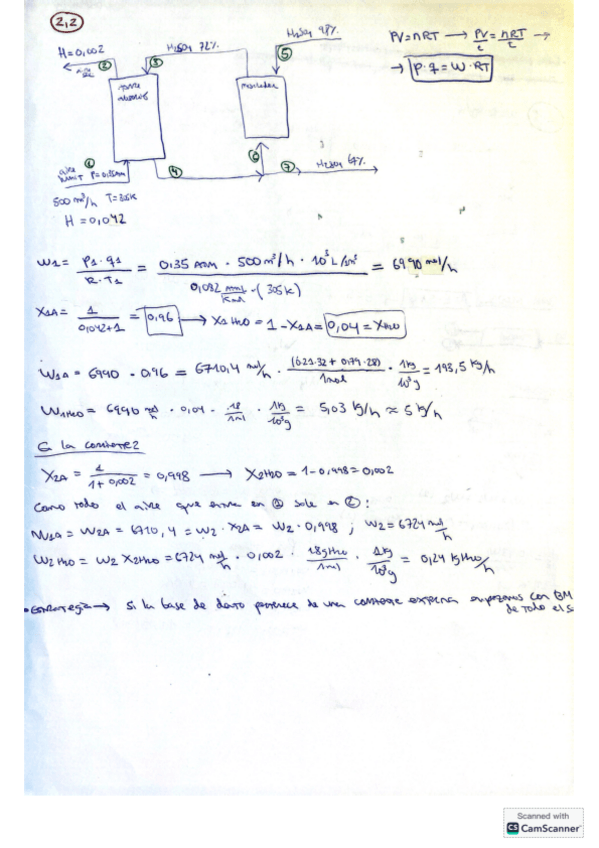 2,2
H=0,002
aire
②
③
H₂SO₄ 72%
H₂SO₄ 98%
⑤
PV=nRT → PV/t = nRT/t →
→ P·q = W·RT
torre
mezclador
①
aire
P=0,35 atm
500 m³/h T=305K
H=0,042
④
⑥
⑦
H₂SO₄ 67%
W₁ = P₁·q₁/R·T₁ = 0,35 atm · 500 m³/h · 10³L/1m³ / 0,082 atmL/Kmol ·(305K) = 6990 mol/h
X₁A = 1/0,042+1 = 0,96 → X₁H₂O = 1-X₁A = 0,04 = XH₂O
W₁A = 6990 · 0,96 = 6710,4 mol/h · (0,21·32 + 0,79·28)/1mol · 1kg/10³g = 193,5 kg/h
W₁H₂O = 6990 mol/h · 0,04 · 18/1mol · 1kg/10³g = 5,03 kg/h ≈ 5 kg/h
En la corriente 2
X₂A = 1/1+0,002 = 0,998 → X₂H₂O = 1-0,998 = 0,002
Como todo el aire que entra en ① sale en ②:
W₁A = W₂A = 6710,4 = W₂·X₂A = W₂·0,998 ; W₂ = 6724 mol/h
W₂H₂O = W₂ X₂H₂O = 6724 mol/h · 0,002 · 18gH₂O/1mol · 1kg/10³g = 0,24 kgH₂O/h
•Estrategia → Si la base de dato pertenece de una corriente externa empezamos con BM
de todo el s
Scanned with
CS CamScanner